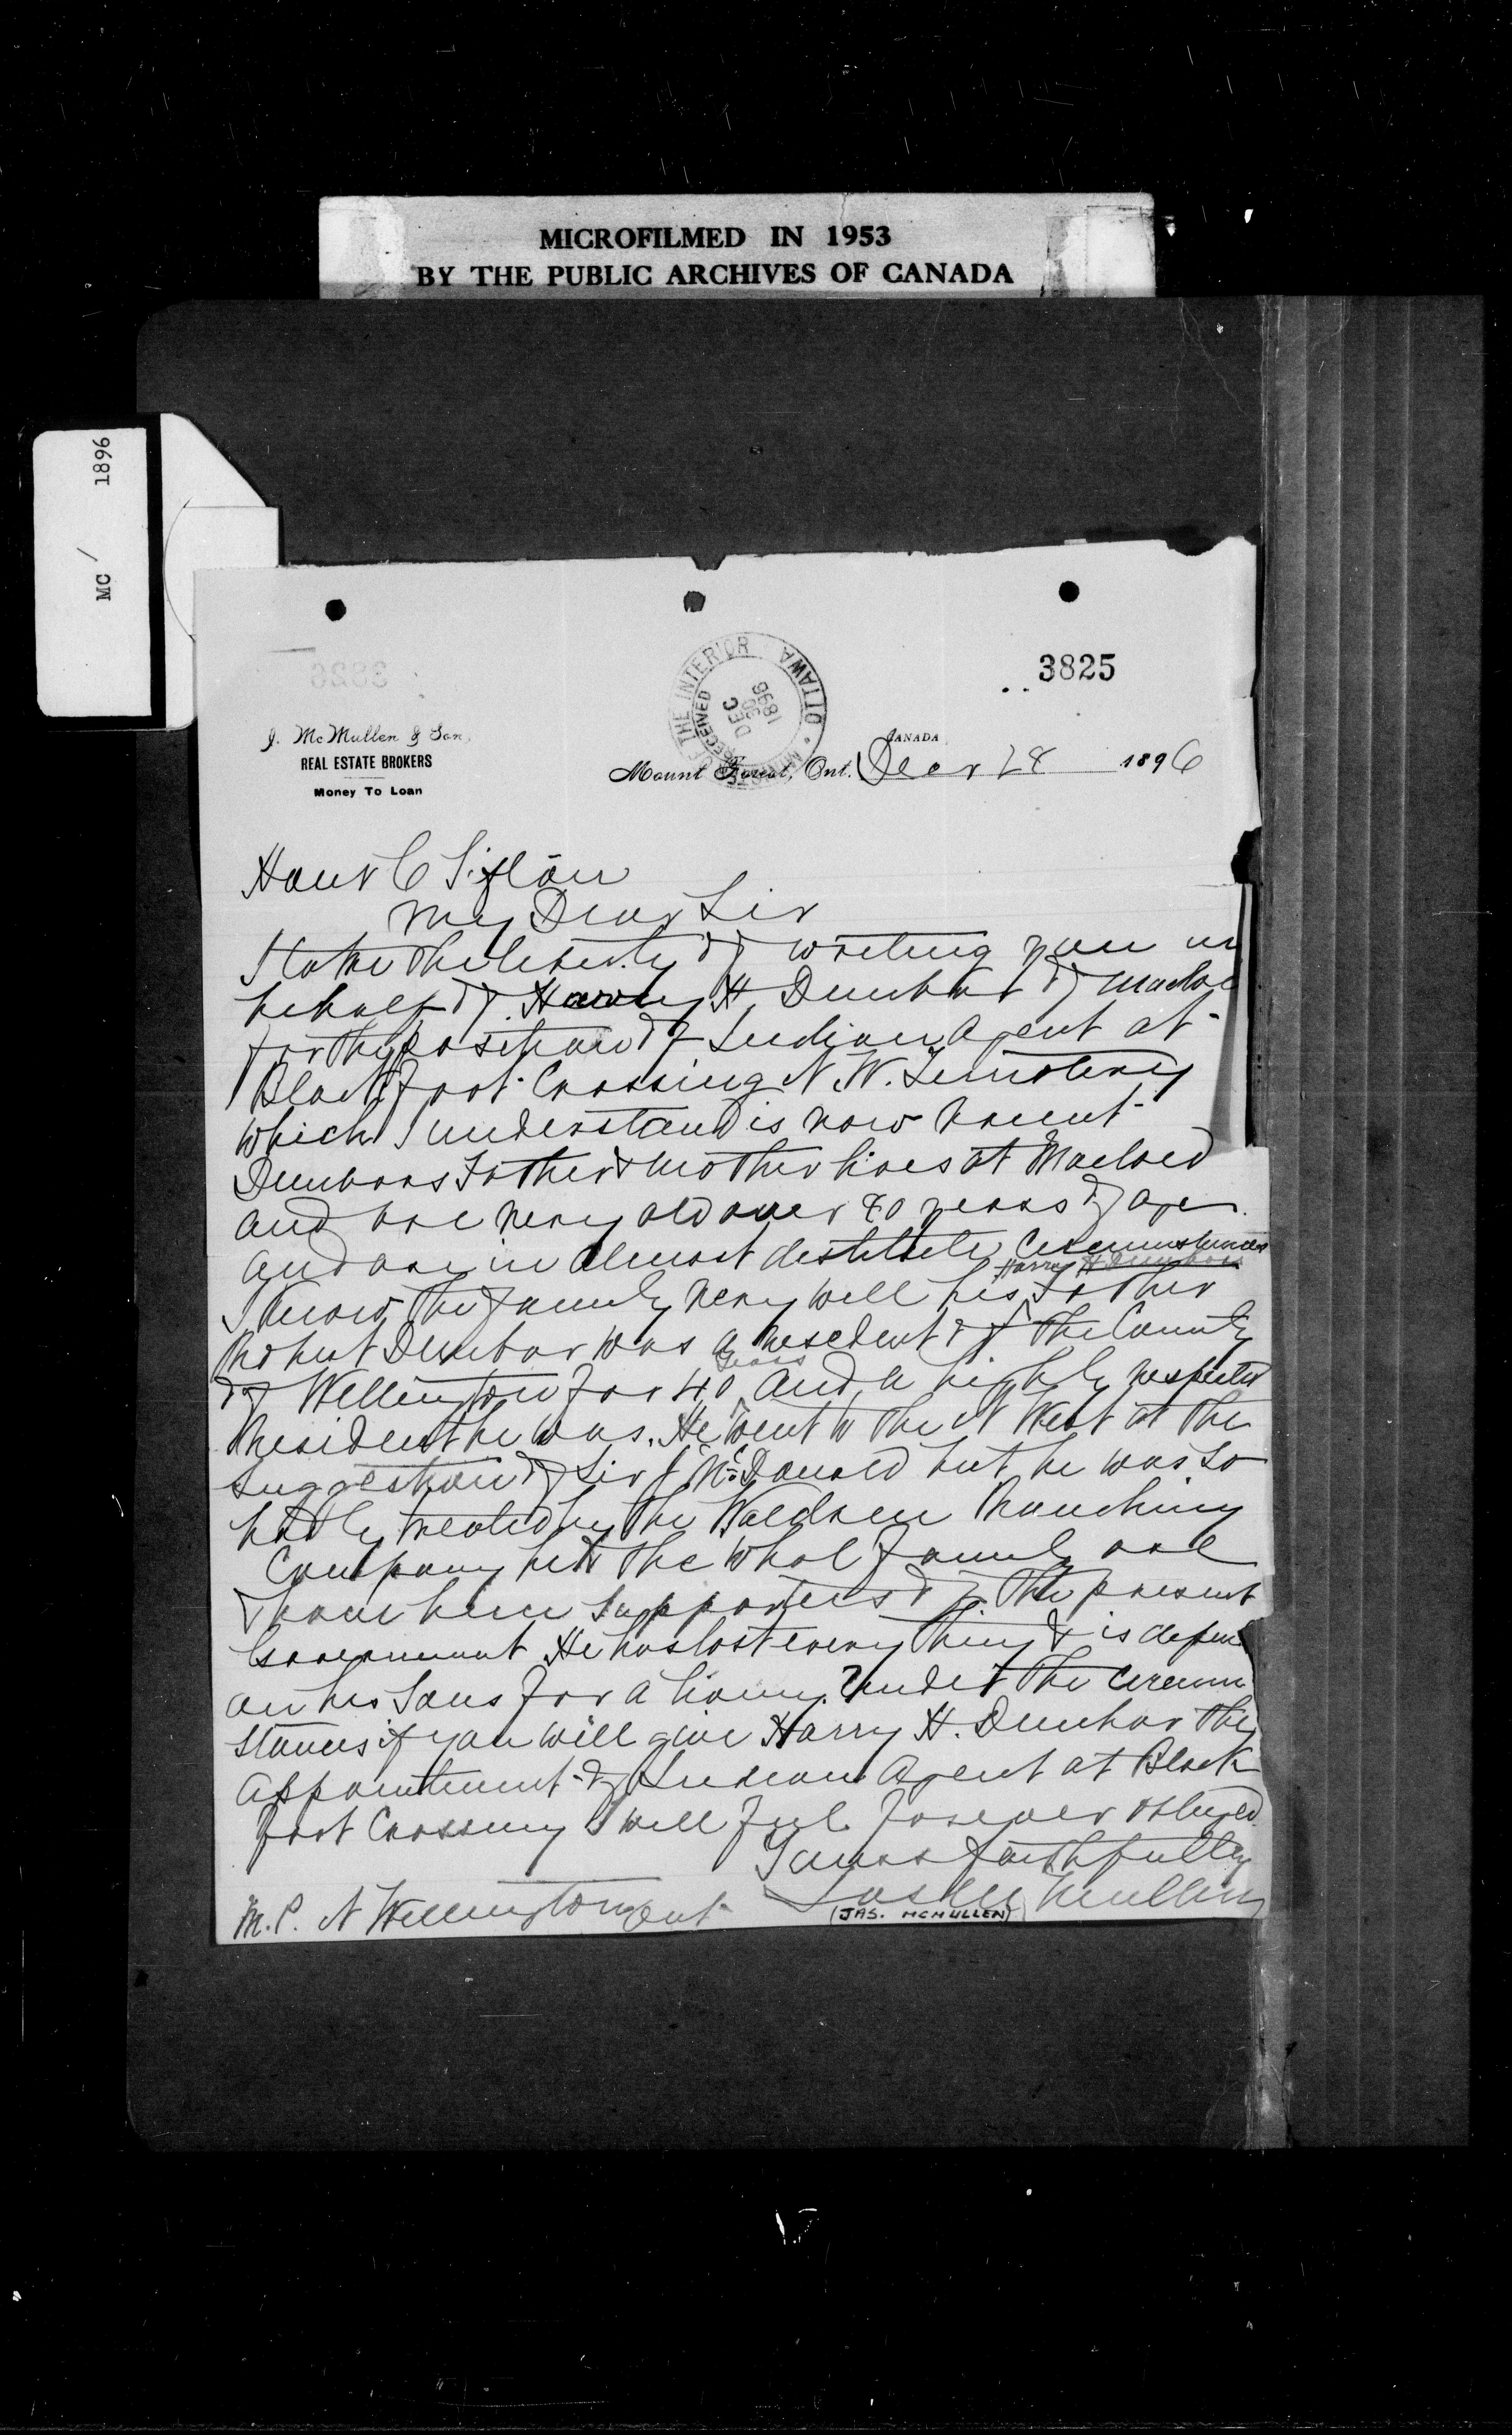 MICROFILMED IN 1953
BY THE PUBLIC ARCHIVES OF CANADA
MC / 1896
3825
THE INTERIOR OTTAWA
RECEIVED
DEC
30
1896
J. McMullen & Son,
REAL ESTATE BROKERS
Money To Loan
CANADA
Mount Forest, Ont. Decr 28 1896
Honr C Sifton
My Dear Sir
I take the liberty of writing you in
behalf of Harry H Dunbar of Macleo
for the position of Indian Agent at
Blackfoot Crossing N. W. Territory
which I understand is now vacent
Dunbars Father & Mother lives at Macleod
and are very old over 80 years of age
and are in almost destitute Circumstances
Harry H Dunbars
I know the family very well his Father
Robert Dunbar was a resedent of the County
years
of Wellington for 40 and a highly respected
Resident he was. He went to the N West at the
suggestion of Sir J McDonald but he was so
badly treated by the Waldren Ranching
Company he & the whol family are
& have been supporters of the present
Government He has lost every thing & is depen
on his Sons for a living. Under the circum
stances if you will give Harry H. Dunbar the
appointment of Indian Agent at Black
foot Crossing I will feel forever obliged
Yours faithfully
Jas McMullen
(JAS. MCMULLEN)
M.P. N Wellington Ont